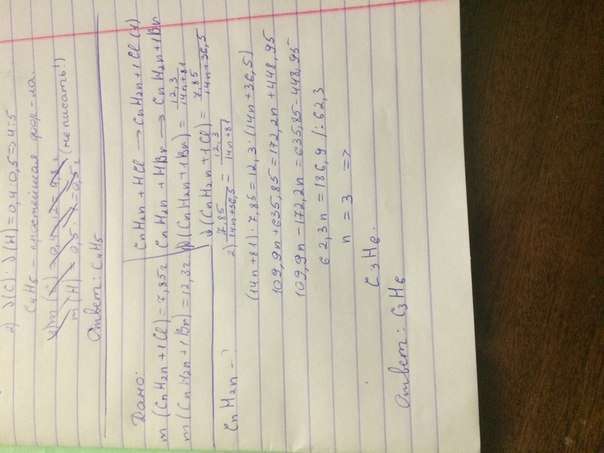 2) ν(C) : ν(H) = 0,4 : 0,5 => 4:5
C4H5 - простейшая фор-ла.
m(H) = 0,5 (не писать!)
Ответ: C4H5
Дано:
m (CnH2n+1Cl) = 7,85г
m (CnH2n+1Br) = 12,3г
CnH2n - ?
CnH2n + HCl → CnH2n+1Cl (1)
CnH2n + HBr → CnH2n+1Br
ν(CnH2n+1Br) = 12,3/14n+81
ν(CnH2n+1Cl) = 7,85/14n+36,5
2) 7,85/14n+36,5 = 12,3/14n+81
(14n+81)·7,85 = 12,3·(14n+36,5)
109,9n+635,85 = 172,2n+448,95
109,9n-172,2n = 635,85-448,95
62,3n = 186,9 /:62,3
n = 3 =>
C3H6.
Ответ: C3H6